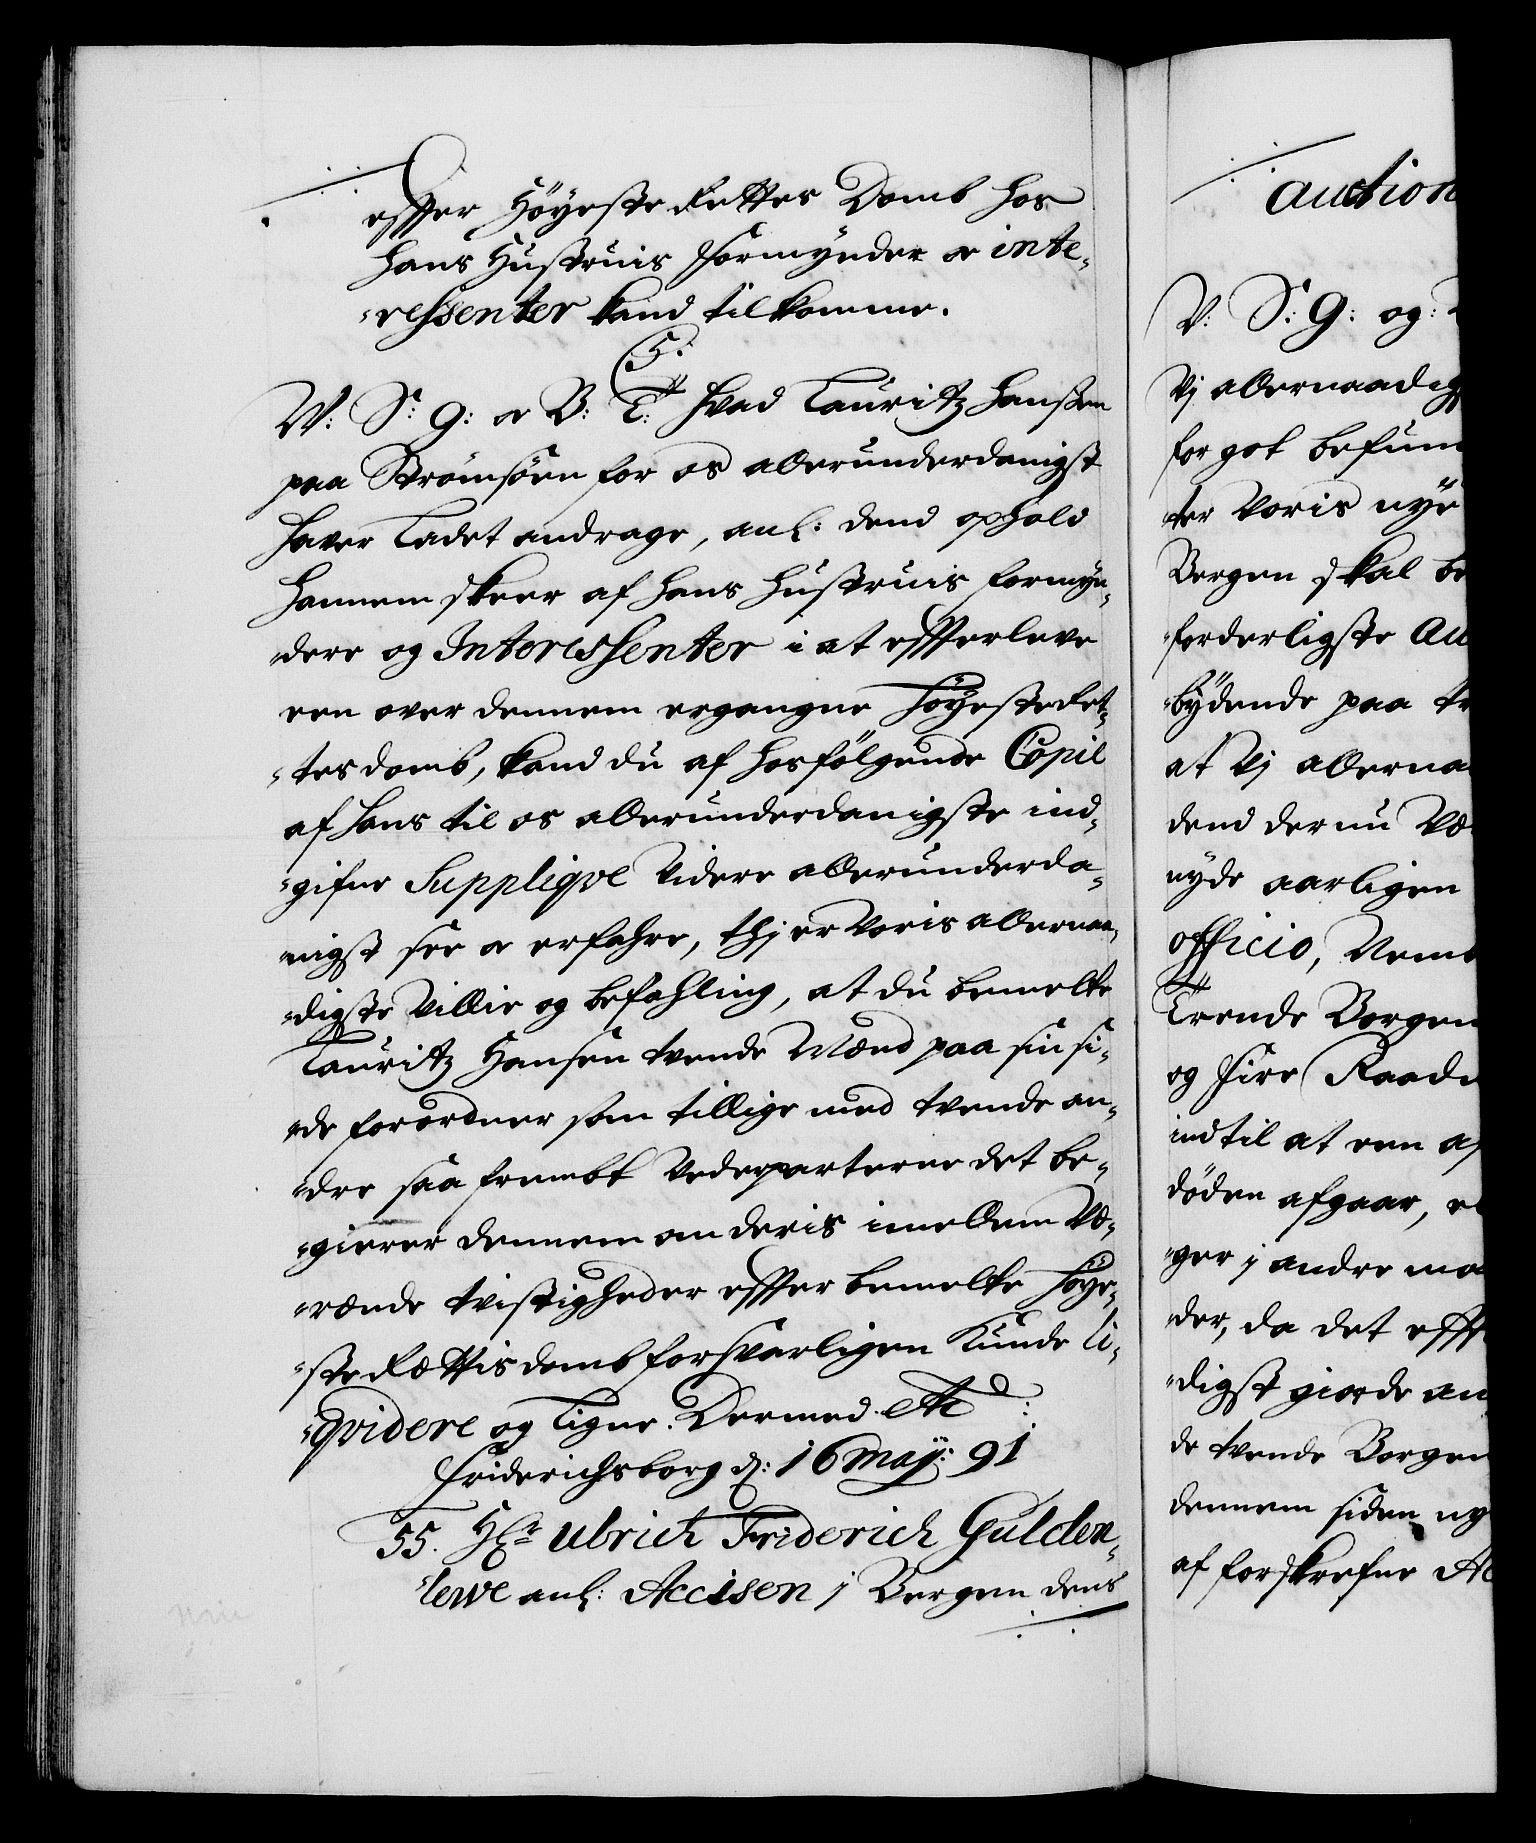 effter Höyeste Rettes Domb hos
hans Hustruis formynder oc inte-
-ressenter kand tilkomme.
C5.
W: S: G: oc B: T: hvad Lauritz Hanssen
paa Strømsöen for os allerunderdanigst
haver ladet andrage, anl: dend ophold
hannem skeer af hans hustruis formyn-
-dere og Interessenter i at effterleve
een over dennem ergangne Höyeste Ret-
-tes domb, kand du af hosfölgende Copie
af hans til os allerunderdanigste ind-
-gifne Supplique videre allerunderda-
-nigst see oc erfahre, thj er Voris allernaa-
-digste Villie og befahling, at du bemelte
Lauritz Hansen tvende Mænd paa sin si-
-de forordner som tillige med tvende an-
-dre saa frembt Vederparterne det be-
-gierer dennem om deris imellem Væ-
-rænde tvistigheder effter bemelte Höye-
-ste Rættis domb forsvarligen kunde li-
-qvidere og ligne. Dermed etc
Friderichsborg d: 16 Maij: 91
55. Hr Ulrich Friderich Gulden-
-lewe anl: Accisen i Bergen dend
auction
V: S: G: og:
Vj allernaadig
for got befun
-ter Voris nye
Bergen skal be
-forderligste Au
-bydende paa tr
at Vj allerna
dend der nu Væ
nyde aarligen
officio, Nemb
Trende Borgem
og fire Raadm
indtil at een af
döden afgaar, el
-ger i andre maa
-der, da det efft
-digst giorde an
de tvende Borgem
dennem siden ny
af forskrefne Ac